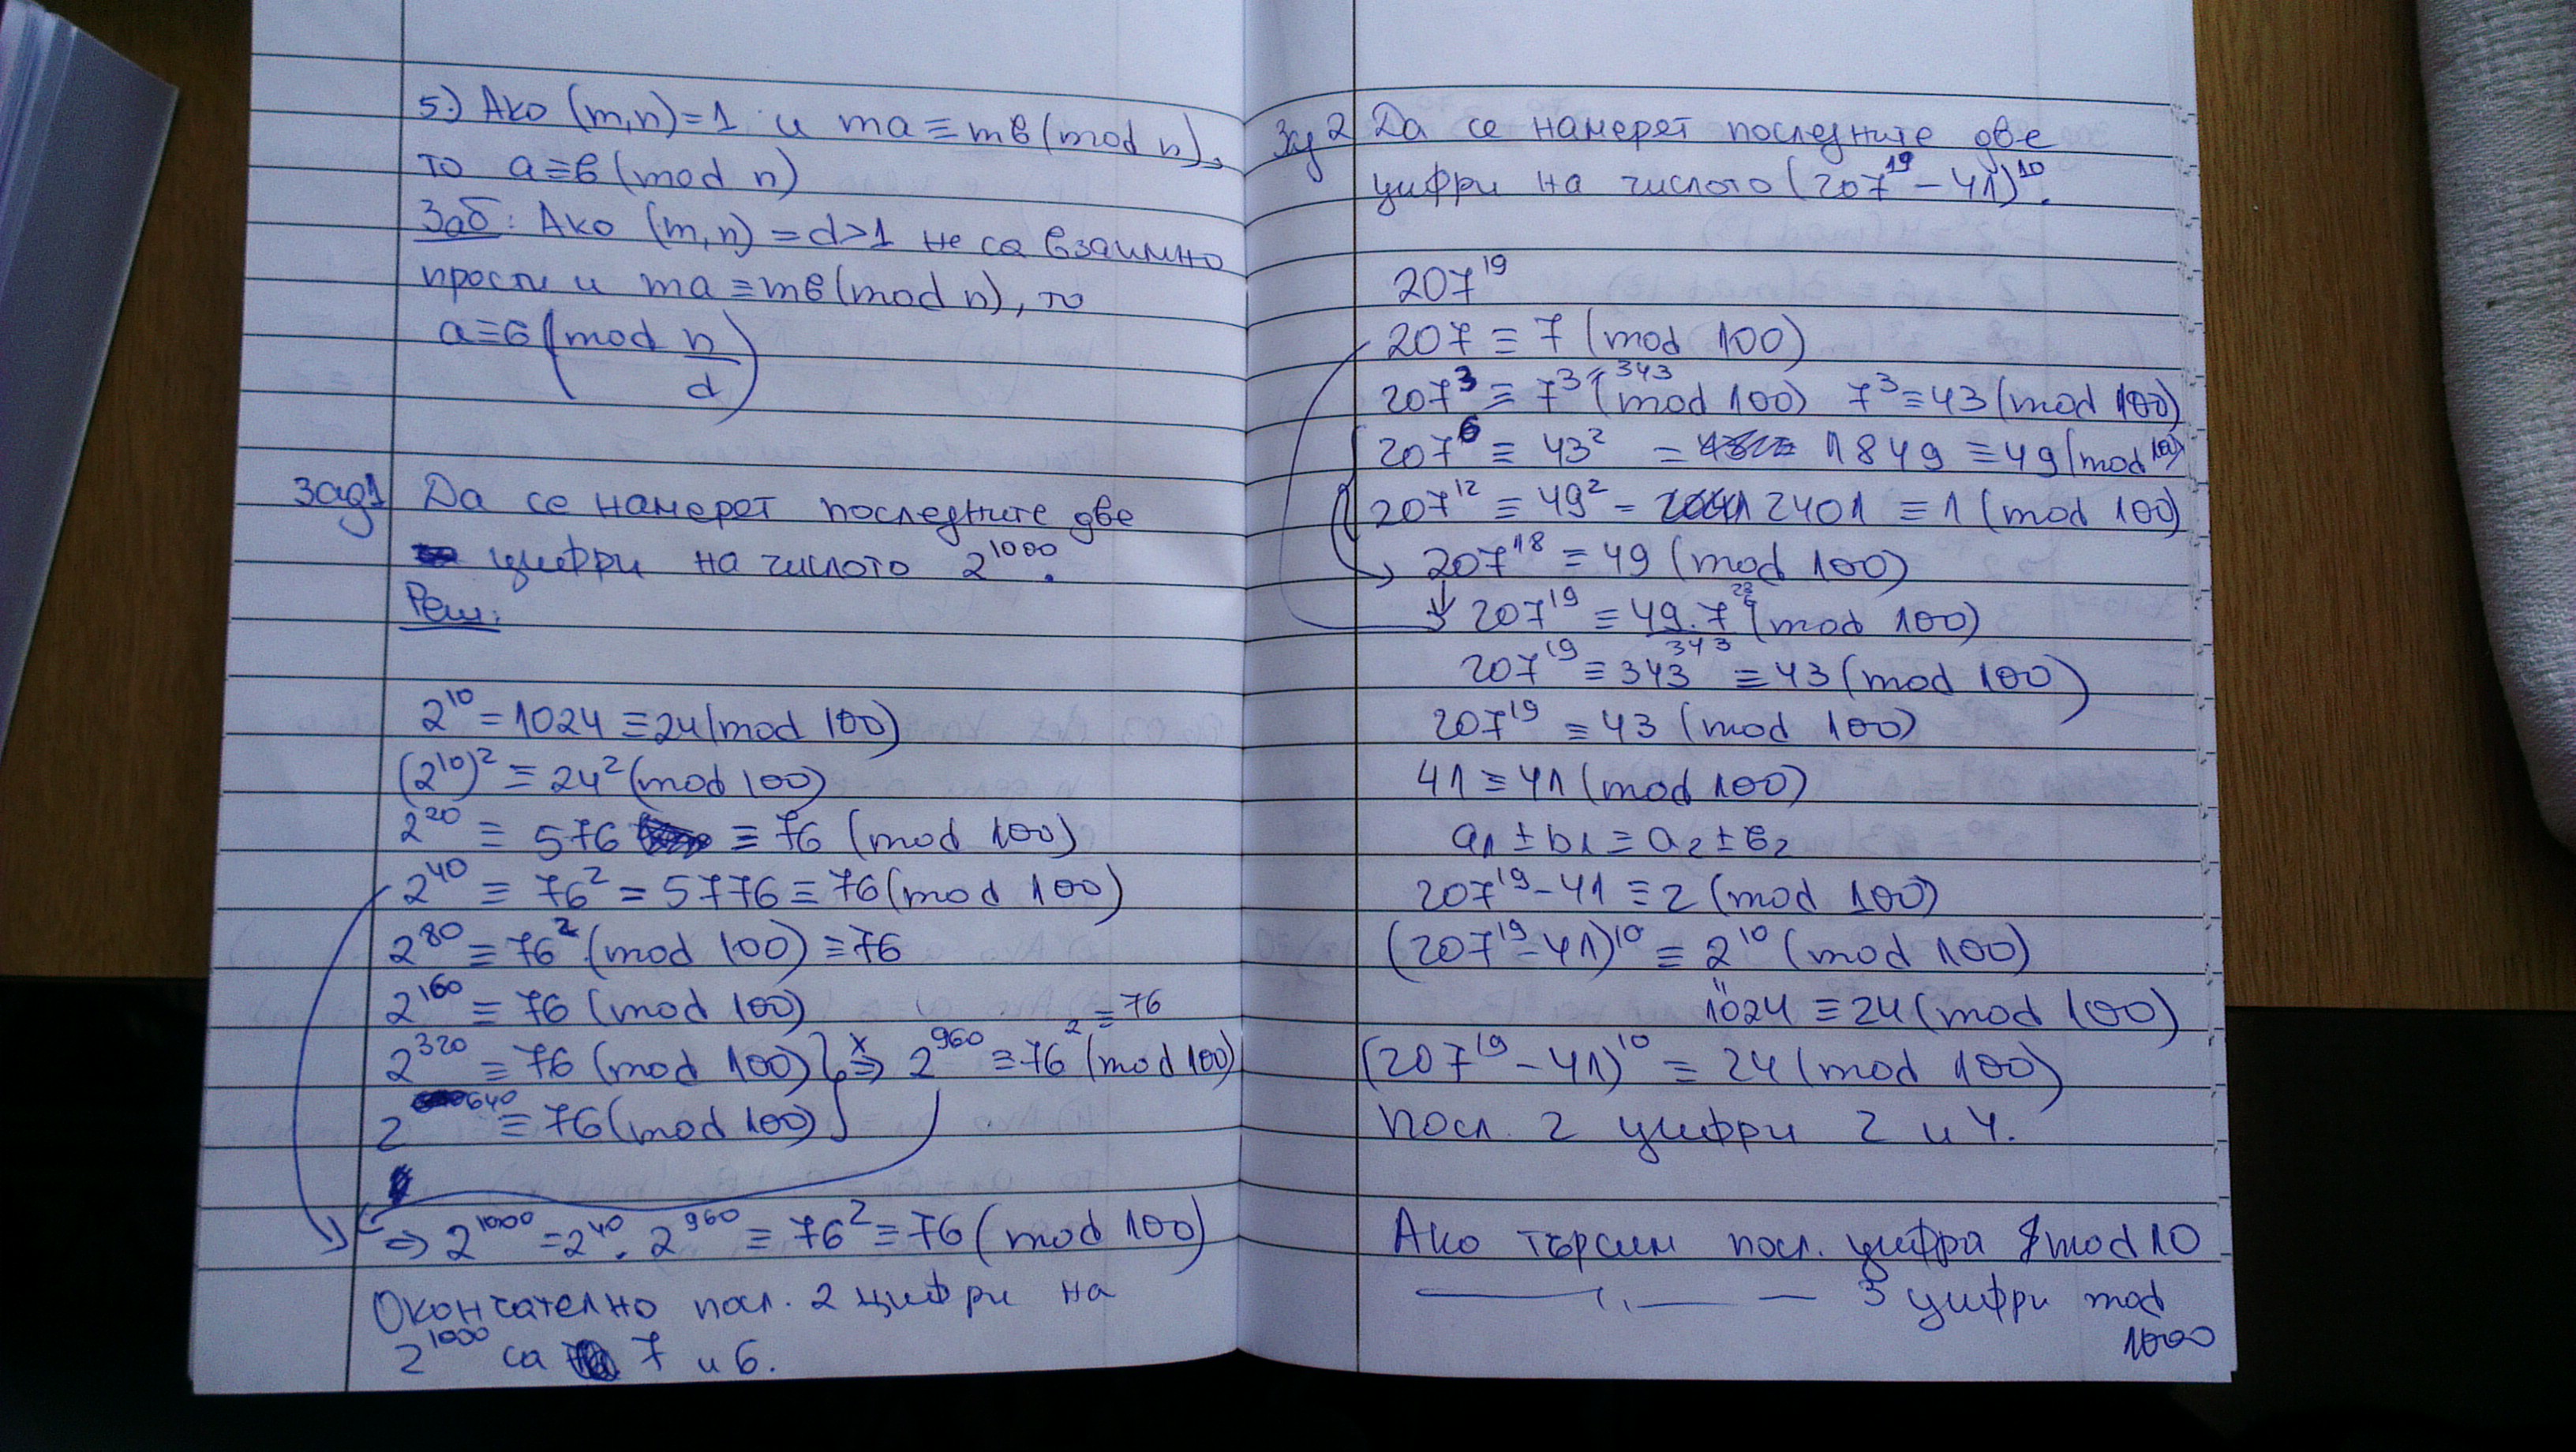 5.) Ако (m,n)=1 и ma≡mв(mod n),
то a≡в(mod n)
Заб: Ако (m,n)=d>1 не са взаимно
прости и ma≡mв(mod n), то
a≡в(mod n/d)
Зад1 Да се намерят последните две
цифри на числото 2^1000.
Реш:
2^10=1024≡24(mod 100)
(2^10)^2≡24^2(mod 100)
2^20≡576≡76 (mod 100)
2^40≡76^2=5776≡76(mod 100)
2^80≡76^2(mod 100)≡76
2^160≡76(mod 100)
2^320≡76(mod 100) x ⇒ 2^960≡76^2≡76 (mod 100)
2^640≡76(mod 100)
⇒ 2^1000=2^40.2^960≡76^2≡76(mod 100)
Окончателно посл. 2 цифри на
2^1000 са 7 и 6.
Зад2 Да се намерят последните две
цифри на числото (207^19-41)^10.
207^19
207≡7(mod 100)
207^3≡7^3(mod 100) 343 7^3≡43(mod 100)
207^6≡43^2=1849≡49(mod 100)
207^12≡49^2=2401≡1(mod 100)
207^18≡49(mod 100)
207^19≡49.7(mod 100)
343
207^19≡343≡43(mod 100)
207^19≡43(mod 100)
41≡41(mod 100)
a1±b1≡a2±в2
207^19-41≡2(mod 100)
(207^19-41)^10≡2^10(mod 100)
"
1024≡24(mod 100)
(207^19-41)^10≡24(mod 100)
посл. 2 цифри 2 и 4.
Ако търсим посл. цифра mod 10
—— 〃 —— — 3 цифри mod
1000